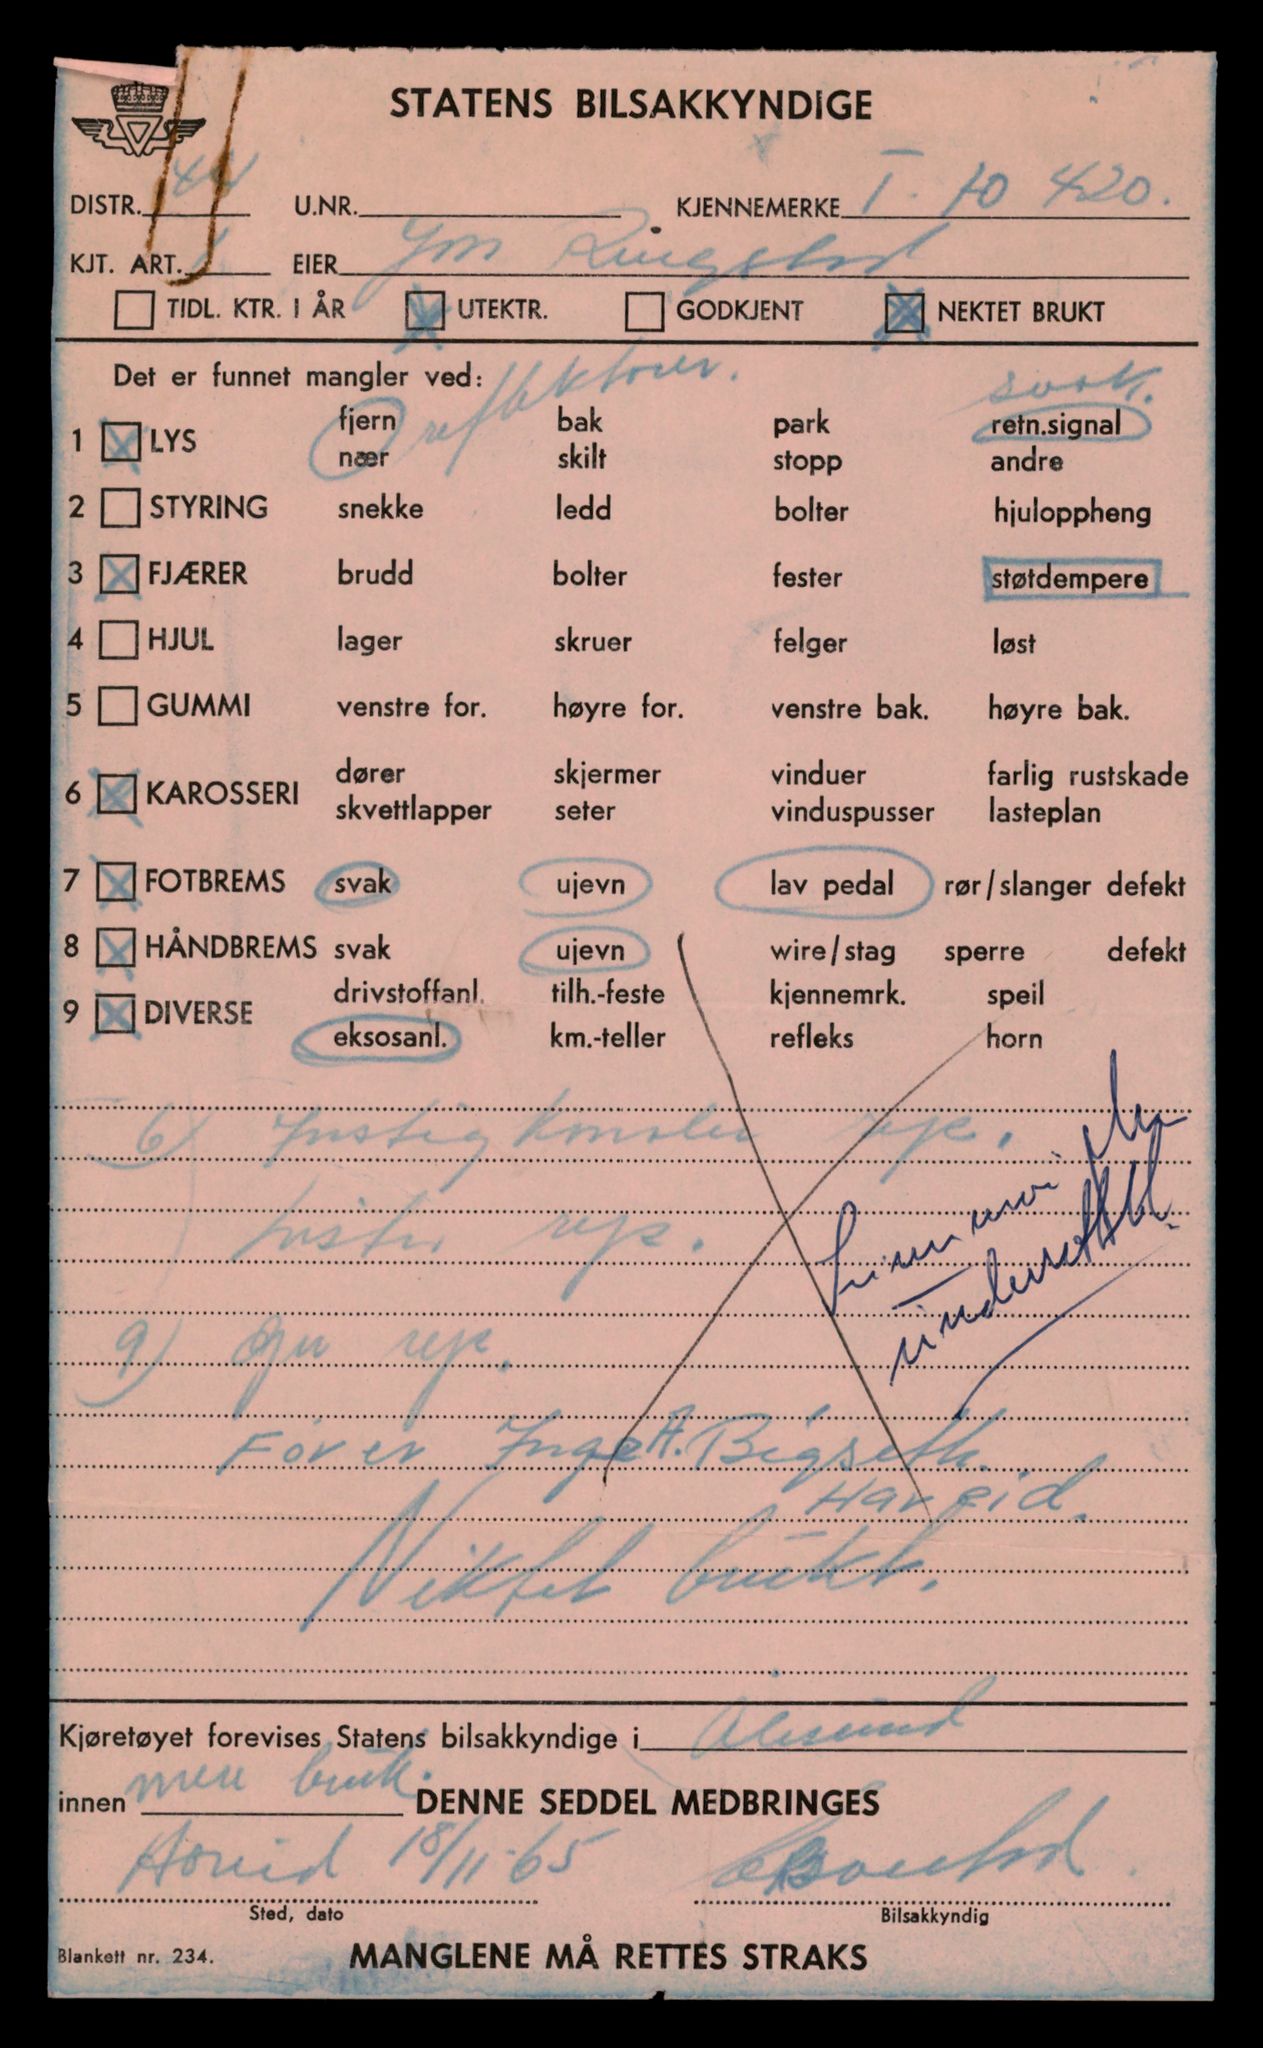 STATENS BILSAKKYNDIGE
DISTR. 44 U.NR. KJENNEMERKE T- 10 420.
KJT. ART. 1 EIER Jon Ringstad
TIDL. KTR. I ÅR UTEKTR. GODKJENT NEKTET BRUKT
Det er funnet mangler ved: reflektorer. svak.
1 LYS fjern bak park retn.signal
nær skilt stopp andre
2 STYRING snekke ledd bolter hjuloppheng
3 FJÆRER brudd bolter fester støtdempere
4 HJUL lager skruer felger løst
5 GUMMI venstre for. høyre for. venstre bak. høyre bak.
6 KAROSSERI dører skjermer vinduer farlig rustskade
skvettlapper seter vinduspusser lasteplan
7 FOTBREMS svak ujevn lav pedal rør/slanger defekt
8 HÅNDBREMS svak ujevn wire/stag sperre defekt
9 DIVERSE drivstoffanl. tilh.-feste kjennemrk. speil
eksosanl. km.-teller refleks horn
6) Instig rep.
rep.
9) rep.
underrettet
Fører Inge A. Bigseth.
Hareid.
Nektet brukt.
Kjøretøyet forevises Statens bilsakkyndige i Ålesund
innen mere bruk. DENNE SEDDEL MEDBRINGES
18/11-65
Sted, dato Bilsakkyndig
Blankett nr. 234. MANGLENE MÅ RETTES STRAKS